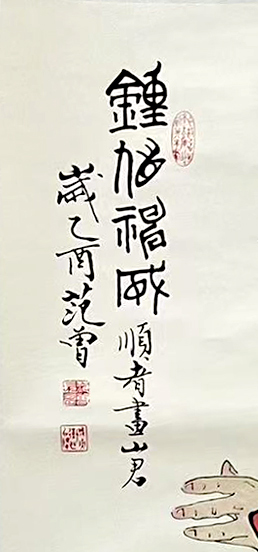 鍾馗神威順者畫山君
歲乙酉范曾